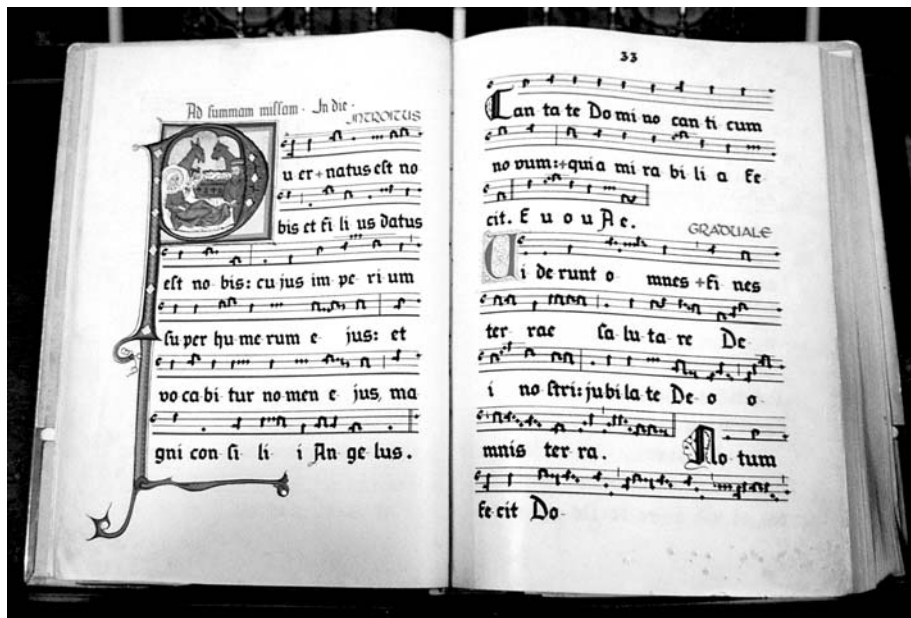 Ad summam missam. In die.
INTROITUS
P
u er + natus est no
bis et fi li us datus
est no bis: cu jus im pe ri um
su per hu me rum e jus: et
vo ca bi tur no men e jus, ma
gni con si li i An ge lus.
33
Can ta te Do mi no can ti cum
no vum: + qui a mi ra bi li a fe
cit. E u o u A e.
GRADUALE
Vi de runt o mnes + fi nes
ter rae sa lu ta re De
i no stri: ju bi la te De o o
mnis ter ra. No tum
fe cit Do